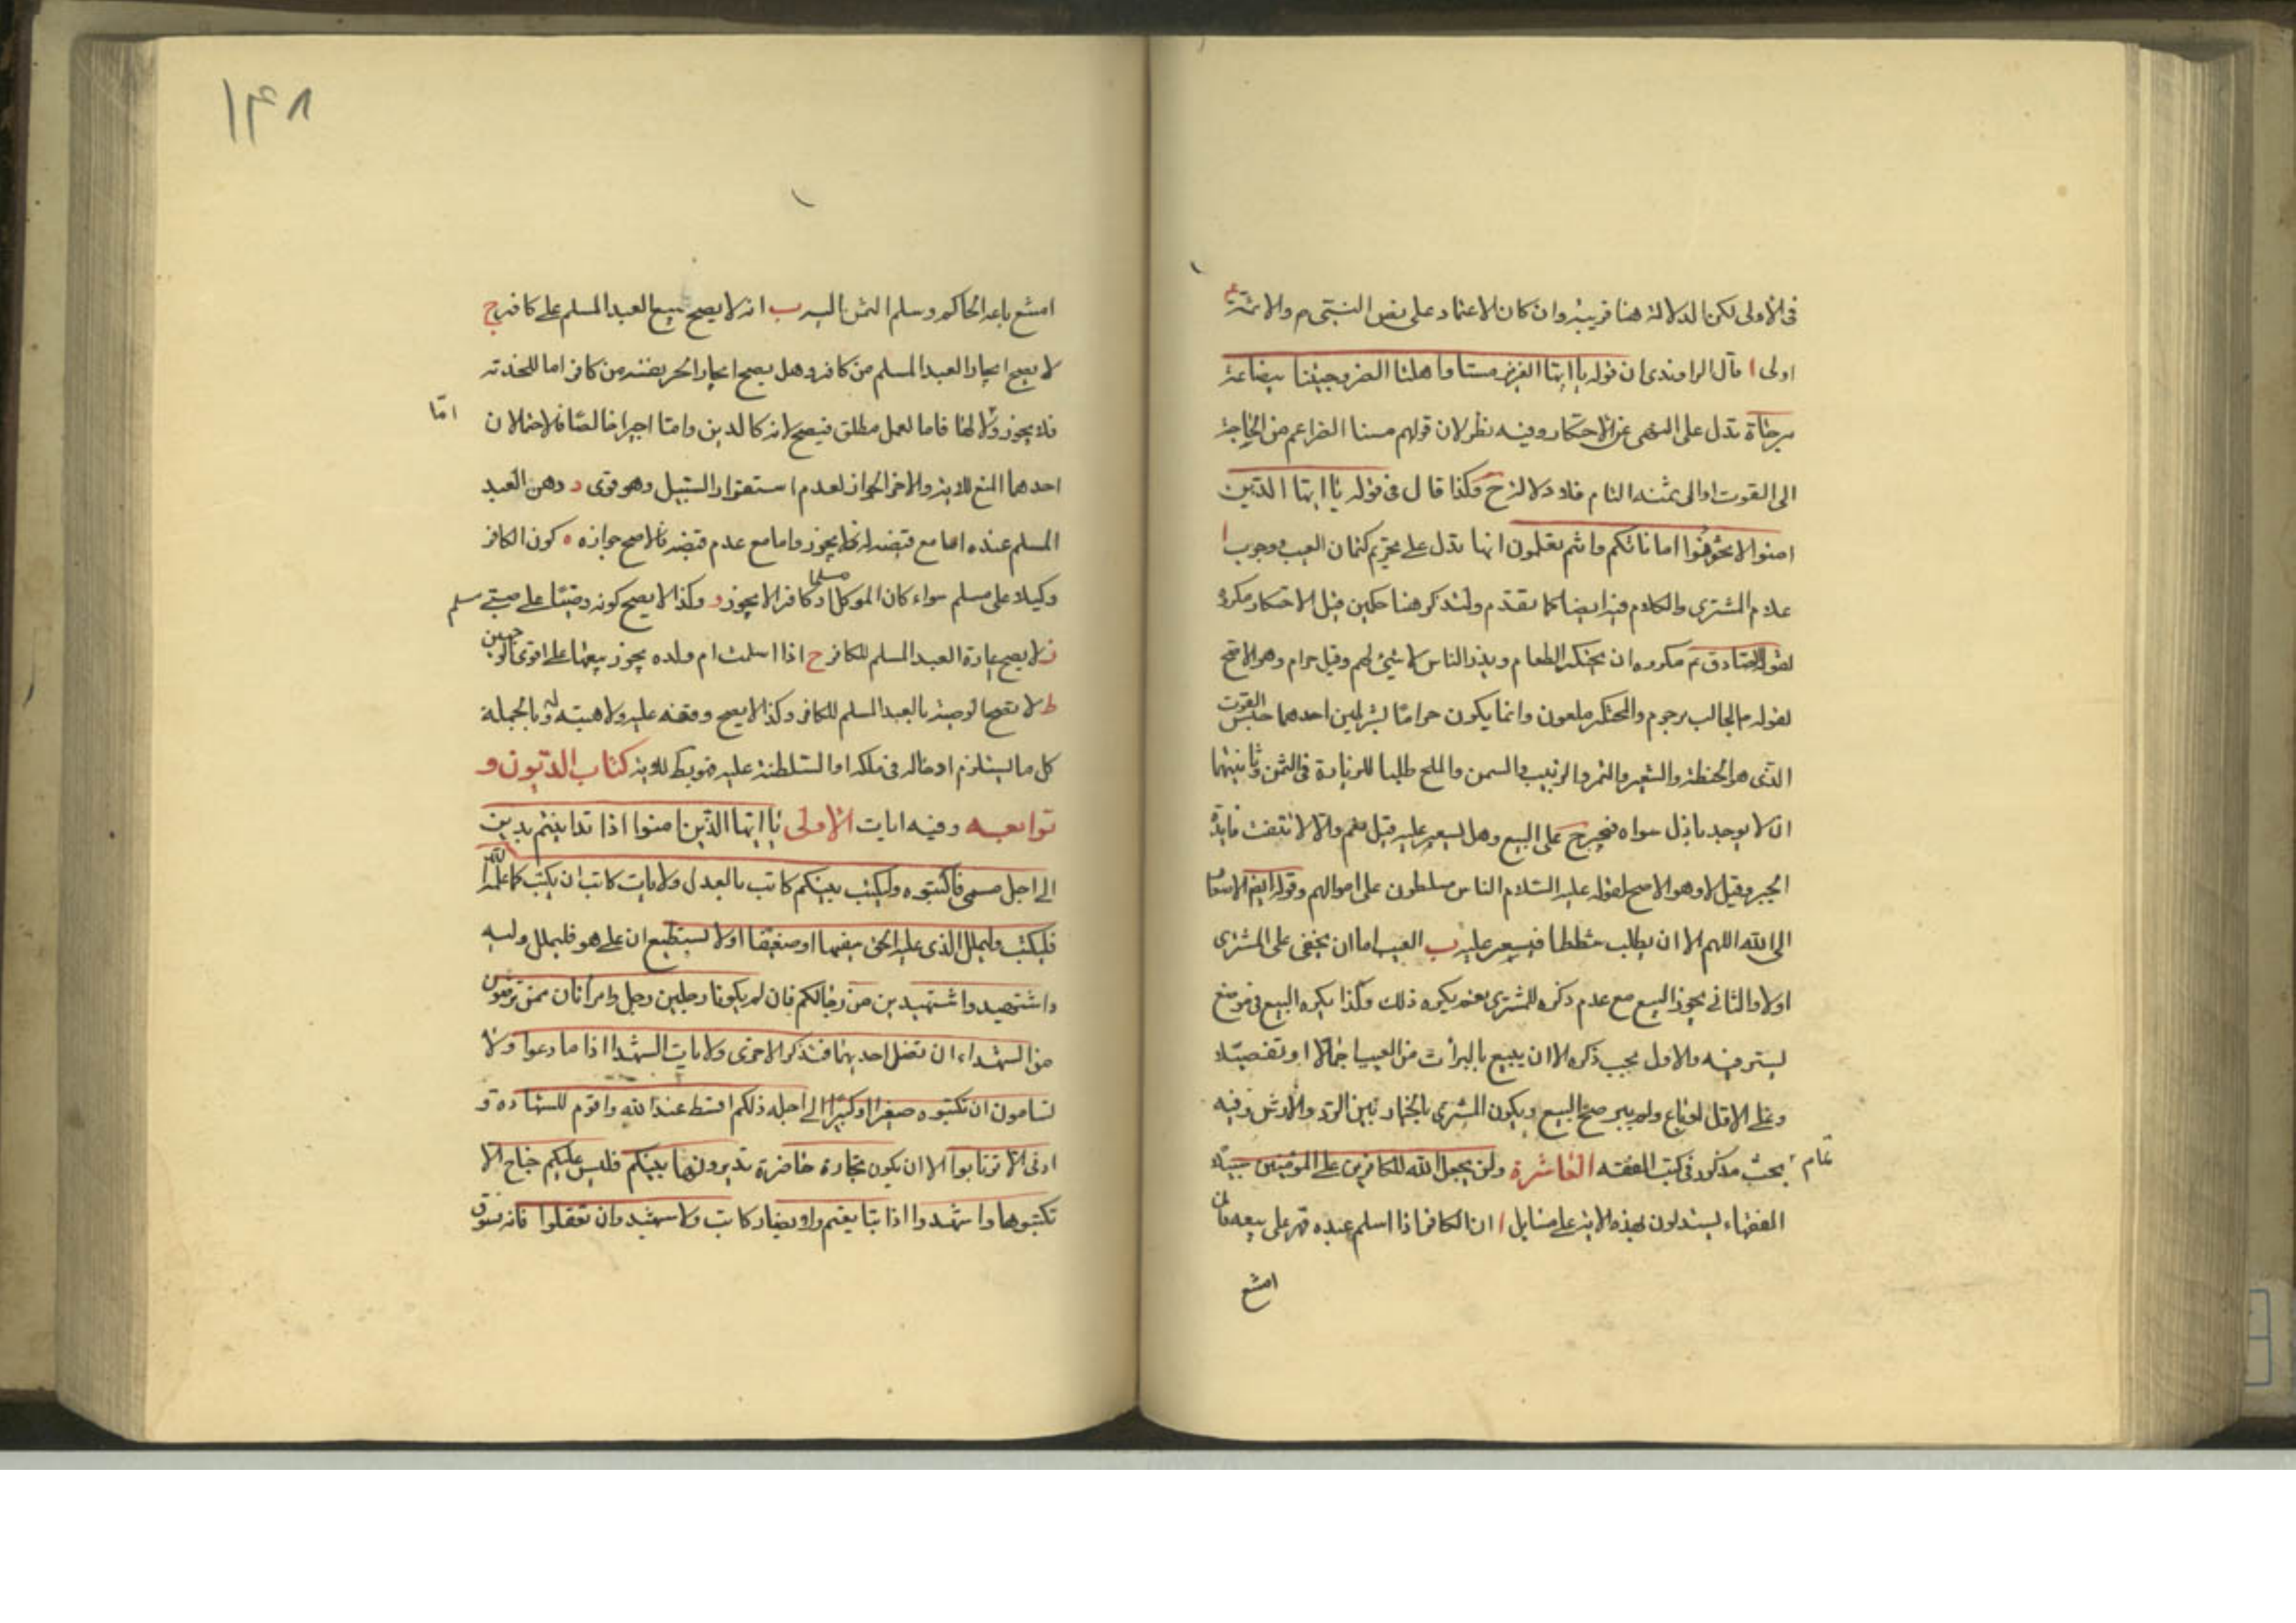 فى الاولى لكن الدلالة هنا قريبة وان كان الاعتماد على نص النبى م والائمة ع
اولى ا قال الراوندى ان قوله يا ايها العزيز مسنا واهلنا الضر وجئنا ببضاعة
مزجاة تدل على النهى عن الاحتكار وفيه نظر لان قولهم مسنا الضر اعم من الحاجة
الى القوت او الى ثمنه التام فلا دلالة ح وكذا قال فى قوله يا ايها الذين
امنوا لا تخونوا اماناتكم وانتم تعلمون انها تدل على تحريم كتمان العيب ووجوب ا
علام المشترى والكلام فيه ايضا كما تقدم ولنذكر هنا حكمين قيل الاحتكار مكروه
لقول الصادق ع مكروه ان يحتكر الطعام ويذر الناس لا شئ لهم وقيل حرام وهو الاصح
لقوله م الجالب مرجوم والمحتكر ملعون وانما يكون حراما بشرطين احدهما حبس القوت
الذى هو الحنطة والشعير والتمر والزبيب والسمن والملح طلبا للزيادة فى الثمن وثانيهما
ان لا يوجد باذل سواه فيجبر ح على البيع وهل يسعر عليه قيل نعم والا لانتفت فايدة
الجبر وقيل لا وهو الاصح لقوله عليه السلام الناس مسلطون على اموالهم وقوله ايضا الاسعار
الى الله اللهم الا ان يطلب شططا فيسعر عليه ب العيب اما ان يخفى على المشترى
اولا والثانى يجوز البيع مع عدم ذكره للمشترى نعم يكره ذلك وكذا يكره البيع فى موضع
يستر فيه والاول يجب ذكره الا ان يبيع بالبرأت من العيب اجمالا او تفصيلا
وعلى الاول لو باع ولم يبر صح البيع ويكون المشترى بالخيار بين الرد والارش وفيه
بحث مذكور فى كتب الفقه العاشرة ولن يجعل الله للكافرين على المؤمنين سبيلا
عام
الفقهاء يستدلون بهذه الاية على مسايل ا ان الكافر اذا اسلم عبده قهر على بيعه فان
امتنع
۱۴۸
امتنع باعه الحاكم وسلم الثمن اليه ب انه لا يصح بيع العبد المسلم على كافر ج
لا يصح ايجار العبد المسلم من كافر وهل يصح ايجار الحر نفسه من كافر اما للخدمة
فلا يجوز فاما لعمل مطلق فيصح لانه كالدين واما اجيرا خاصا فالاحتمالان
اما
احدهما المنع للاية والاخر الجواز لعدم استقرار السبيل وهو قوى د رهن العبد
المسلم عنده اما مع قبضه له فلا يجوز واما مع عدم قبضه فالاصح جوازه ه كون الكافر
وكيلا على مسلم سواء كان الموكل مسلما او كافر الا يجوز و وكذا لا يصح كونه وصيا على صبى مسلم
ز لا يصح عارة العبد المسلم للكافر ح اذا اسلمت ام ولده يجوز بيعها على اقوى الوجهين
ط لا تصح الوصية بالعبد المسلم للكافر وكذا لا يصح وقفه عليه ولا هبته له وبالجملة
كل ما يستلزم ادخاله فى ملكه او السلطنة عليه للاية كتاب الديون و
توابعه وفيه ايات الاولى يا ايها الذين امنوا اذا تداينتم بدين
الى اجل مسمى فاكتبوه وليكتب بينكم كاتب بالعدل ولا ياب كاتب ان يكتب كما علمه الله
فليكتب وليملل الذى عليه الحق سفيها او ضعيفا او لا يستطيع ان يمل هو فليملل وليه
واستشهدوا شهيدين من رجالكم فان لم يكونا رجلين رجل وامرأتان ممن ترضون
من الشهداء ان تضل احديهما فتذكر الاخرى ولا ياب الشهدا اذا ما دعوا ولا
تسامون ان تكتبوه صغيرا او كبيرا الى اجله ذلكم اقسط عند الله واقوم للشهادة و
ادنى الا ترتابوا الا ان يكون تجارة حاضرة تديرونها بينكم فليس عليكم جناح الا
تكتبوها واشهدوا اذا تبايعتم ولا يضار كاتب ولا شهيد وان تفعلوا فانه فسوق